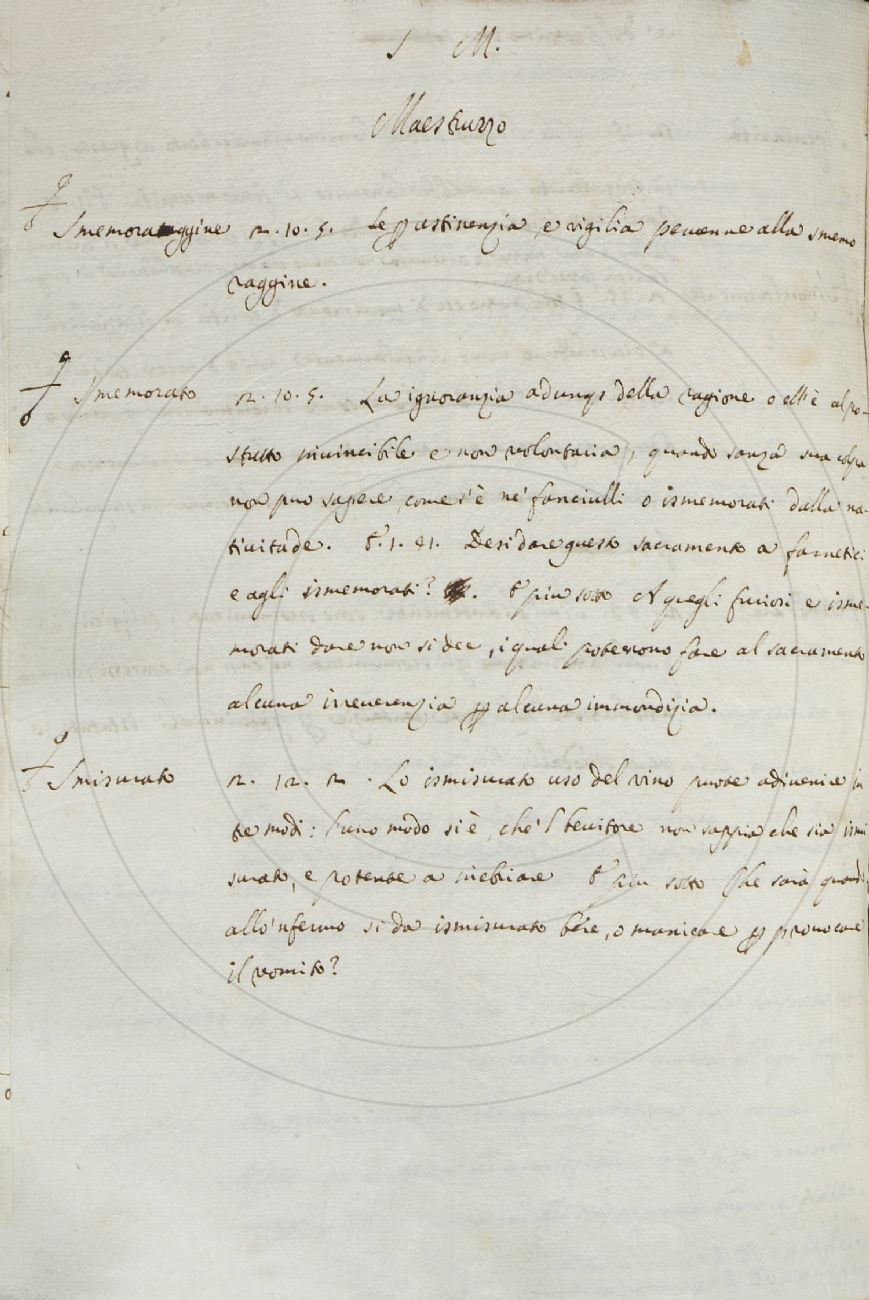 S M.
Maestruzzo
Smemoraggine 2. 10. 5. Se p astinenzia, e vigilia pervenne alla smemo
raggine.
Smemorato 2. 10. 5. La ignoranzia adunq; della ragione o ell'è al po-
stutto invincibile e non volontaria, quando sanza sua colpa
non puo sapere, come s'è ne' fanciulli o ismemorati dalla na-
tivitade. E 1. 41. Desi dare questo sacramento a farnetici
e agli ismemorati? E più sotto A quegli furiosi e isme-
morati dare non si dee, i quali potessono fare al sacramento
alcuna irreverenzia p alcuna immondizia.
Smisurato 2. 12. 2. Lo ismisurato uso del vino puote adivenire in
tre modi: l'uno modo si è, che 'l bevitore non sappia che sia ismi
surato, e potente a inebriare E più sotto Che sarà quando
allo 'nfermo si da ismisurato bere, o manicare p provocare
il vomito?